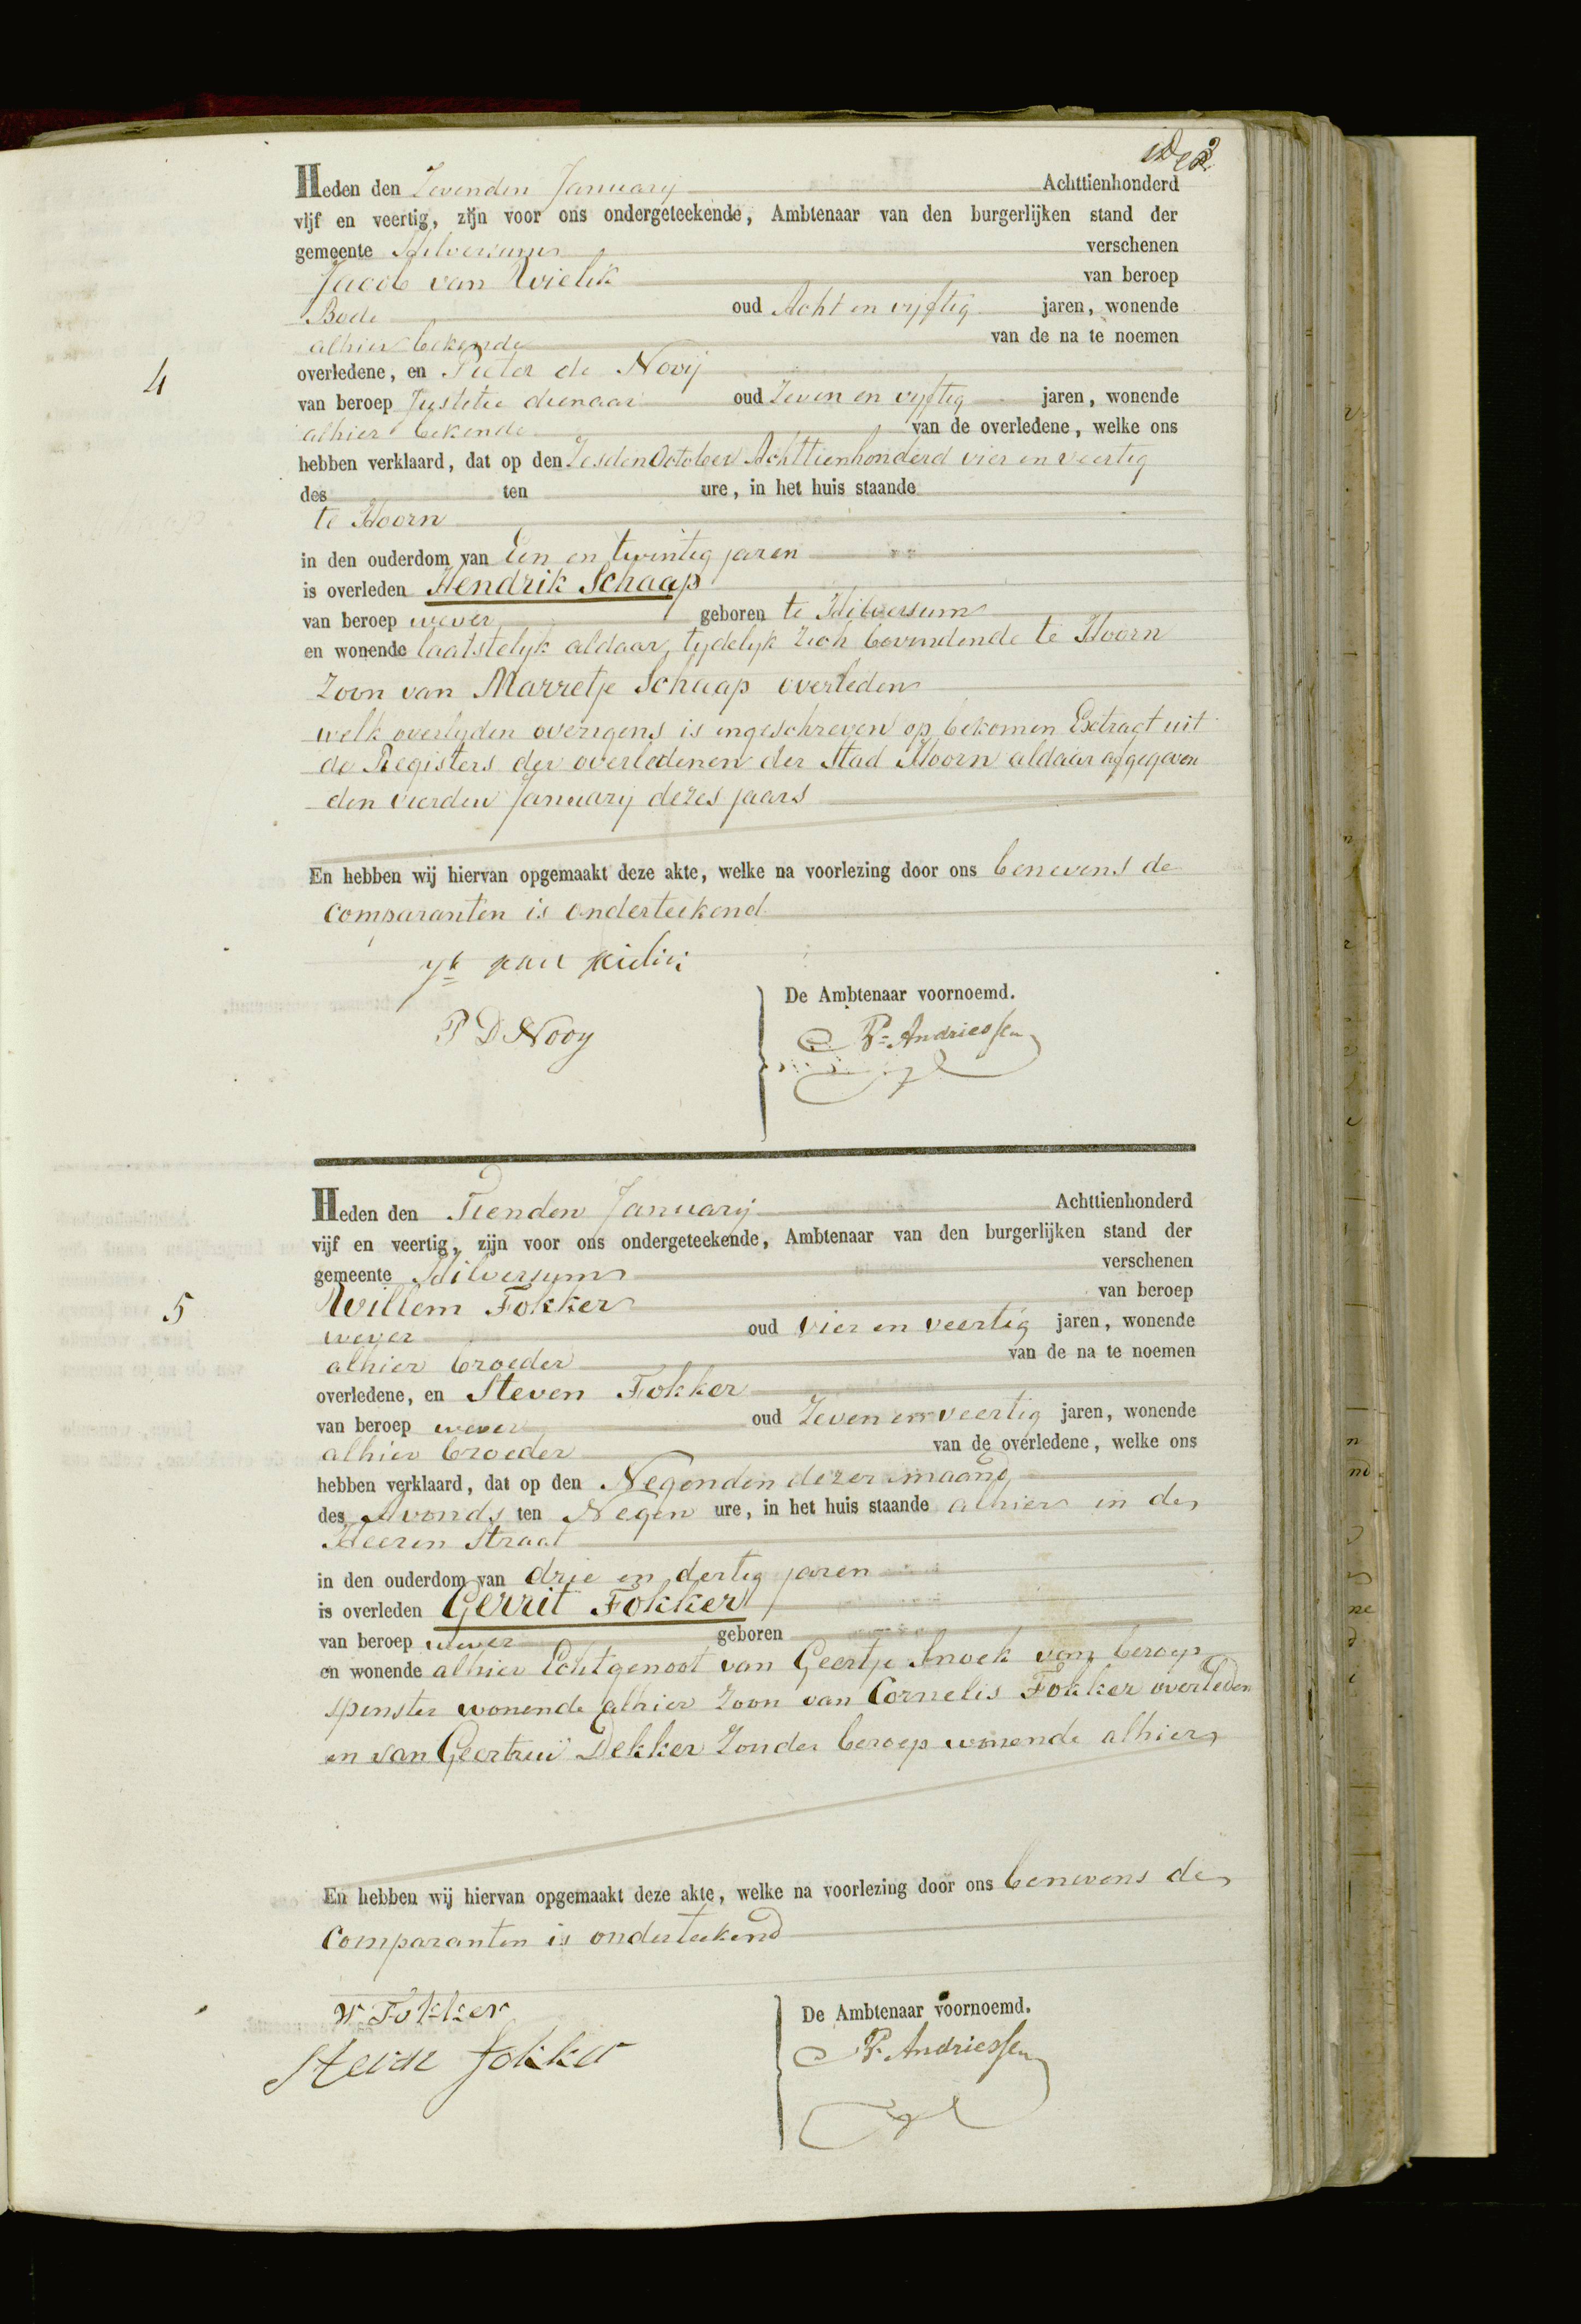 Heden den Zevenden January Achttienhonderd
vijf en veertig, zijn voor ons ondergeteekende, Ambtenaar van den burgerlijken stand der
gemeente Hilversum verschenen
Jacob van van beroep
Bode oud Acht en vijftig jaren, wonende
alhier bekende van de na te noemen
4
overledene, en Pieter de Nooij
van beroep Justitie dienaar oud Zeven en vijftig jaren, wonende
alhier bekende van de overledene, welke ons
hebben verklaard, dat op den Zesden October Achttienhonderd vier en veertig
des ten ure, in het huis staande
te Hoorn
in den ouderdom van Een en twintig jaren
is overleden Hendrik Schaap
van beroep wever geboren te Hilversum
en wonende laatstelyk aldaar, tydelyk zich bevindende te Hoorn
Zoon van Marretje Schaap overleden
welk overlyden overigens is ingeschreven op bekomen Extract uit
de Registers der overledenen der Stad Hoorn aldaar afgegeven
den vierden January dezes jaars
En hebben wij hiervan opgemaakt deze akte, welke na voorlezing door ons benevens de
Comparanten is onderteekend
De Ambtenaar voornoemd.
P D Nooy
P. Andriessen
Heden den Tienden January Achttienhonderd
vijf en veertig, zijn voor ons ondergeteekende, Ambtenaar van den burgerlijken stand der
gemeente Hilversum verschenen
5
Willem Fokker van beroep
wever oud vier en veertig jaren, wonende
alhier broeder van de na te noemen
overledene, en Steven Fokker
van beroep wever oud Zeven en veertig jaren, wonende
alhier broeder van de overledene, welke ons
hebben verklaard, dat op den Negenden dezer maand
des Avonds ten Negen ure, in het huis staande alhier in de
Heeren Straat
in den ouderdom van drie en dertig jaren
is overleden Gerrit Fokker
van beroep wever geboren
en wonende alhier Echtgenoot van Geertje Snoek van beroep
spinster wonende alhier Zoon van Cornelis Fokker overleden
en van Geertrui Dekker Zonder beroep wonende alhier
En hebben wij hiervan opgemaakt deze akte, welke na voorlezing door ons benevens de
Comparanten is onderteekend
W Fokker
De Ambtenaar voornoemd.
Steven Fokker
P. Andriessen